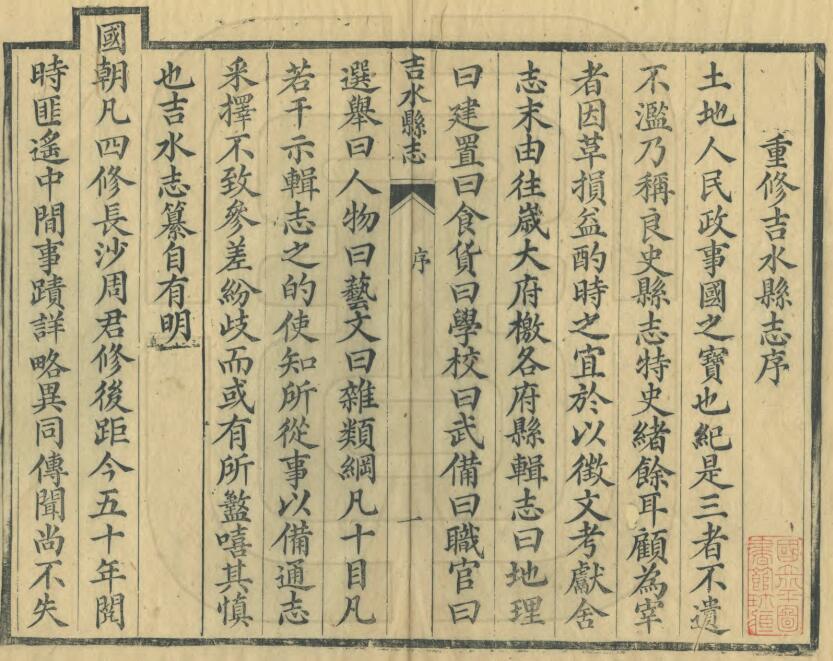 重修吉水縣志序
土地人民政事國之寶也紀是三者不遺
不濫乃稱良史縣志特史緒餘耳顧為宰
者因革損益酌時之宜於以徵文考獻舍
志末由往歲大府檄各府縣輯志曰地理
曰建置曰食貨曰學校曰武備曰職官曰
吉水縣志
序
一
選舉曰人物曰藝文曰雜類綱凡十目凡
若干示輯志之的使知所從事以備通志
采擇不致參差紛歧而或有所盭嘻其慎
也吉水志纂自有明
國朝凡四修長沙周君修後距今五十年閱
時匪遙中間事蹟詳略異同傳聞尚不失
國立北平圖
書館收藏